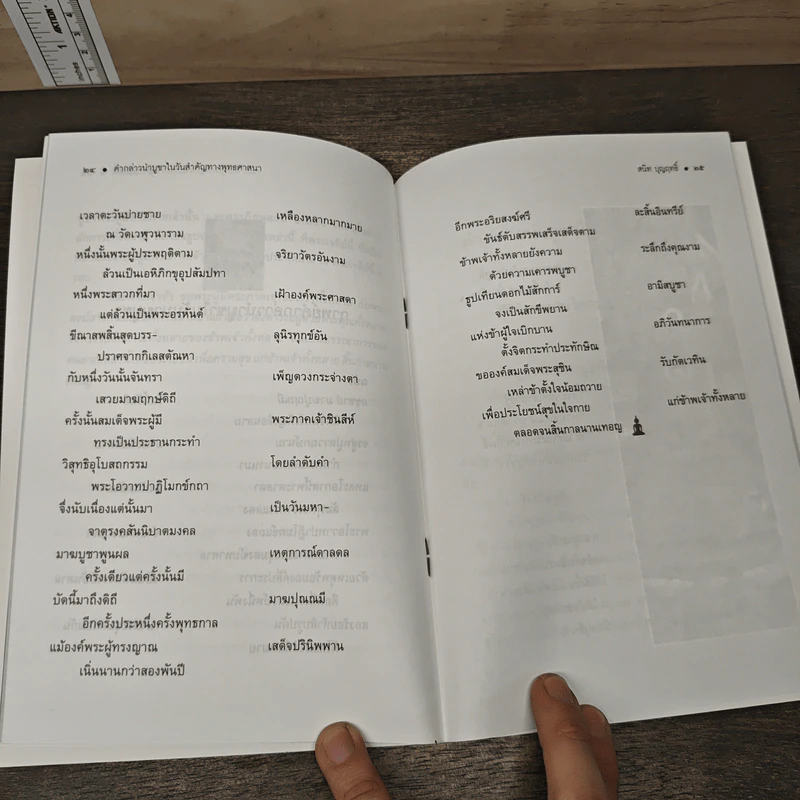 ๒๔ ● คำกล่าวนำบูชาในวันสำคัญทางพุทธศาสนา
เวลาตะวันบ่ายชาย เหลืองหลากมากมาย
ณ วัดเวฬุวนาราม
หนึ่งนั้นพระผู้ประพฤติตาม จริยาวัตรอันงาม
ล้วนเป็นเอหิภิกขุอุปสัมปทา
หนึ่งพระสาวกที่มา เฝ้าองค์พระศาสดา
แต่ล้วนเป็นพระอรหันต์
ขีณาสพสิ้นสุดบรร- ลุนิรทุกข์อัน
ปราศจากกิเลสตัณหา
กับหนึ่งวันนั้นจันทรา เพ็ญดวงกระจ่างตา
เสวยมาฆฤกษ์ดิถี
ครั้งนั้นสมเด็จพระผู้มี พระภาคเจ้าชินสีห์
ทรงเป็นประธานกระทำ
วิสุทธิอุโบสถกรรม โดยลำดับคำ
พระโอวาทปาฏิโมกข์กถา
จึ่งนับเนื่องแต่นั้นมา เป็นวันมหา-
จาตุรงคสันนิบาตมงคล
มาฆบูชาพูนผล เหตุการณ์ดาลดล
ครั้งเดียวแต่ครั้งนั้นมี
บัดนี้มาถึงดิถี มาฆปุณณมี
อีกครั้งประหนึ่งครั้งพุทธกาล
แม้องค์พระผู้ทรงญาณ เสด็จปรินิพพาน
เนิ่นนานกว่าสองพันปี
สนิท บุญฤทธิ์ ● ๒๕
อีกพระอริยสงฆ์ศรี ละสิ้นอินทรีย์
ขันธ์ดับสรรพเสร็จเสด็จตาม
ข้าพเจ้าทั้งหลายยังความ ระลึกถึงคุณงาม
ด้วยความเคารพบูชา
ธูปเทียนดอกไม้สักการ์ อามิสบูชา
จงเป็นสักขีพยาน
แห่งข้าผู้ใจเบิกบาน อภิวันทนาการ
ตั้งจิตกระทำประทักษิณ
ขอองค์สมเด็จพระสุชิน รับกัตเวทิน
เหล่าข้าตั้งใจน้อมถวาย
เพื่อประโยชน์สุขในใจกาย แก่ข้าพเจ้าทั้งหลาย
ตลอดจนสิ้นกาลนานเทอญ
ACTION
inches
1
2